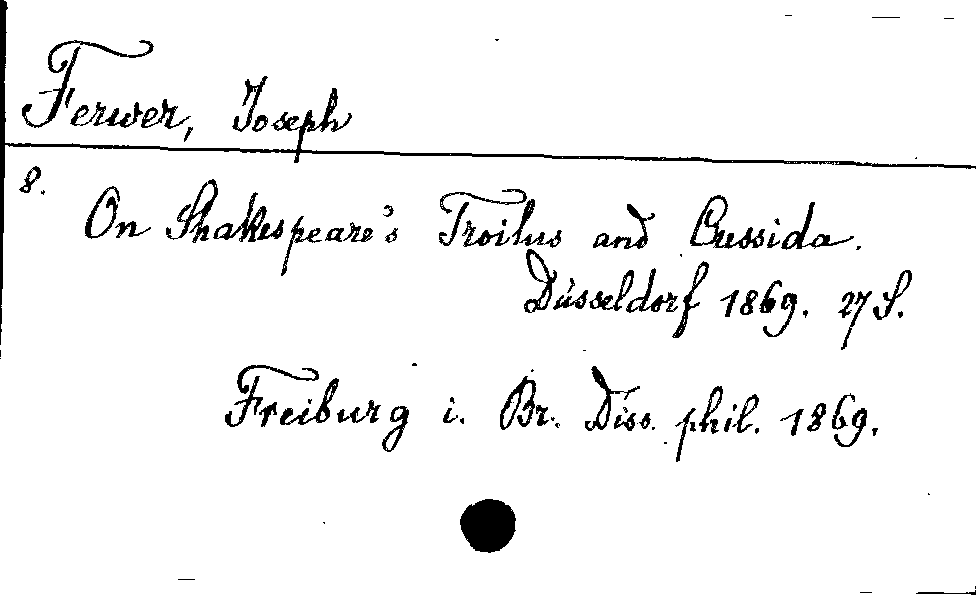 Ferwer, Joseph
8.
On Shakespeare's Troilus and Cressida.
Düsseldorf 1869. 27 S.
Freiburg i. Br. Diss. phil. 1869.